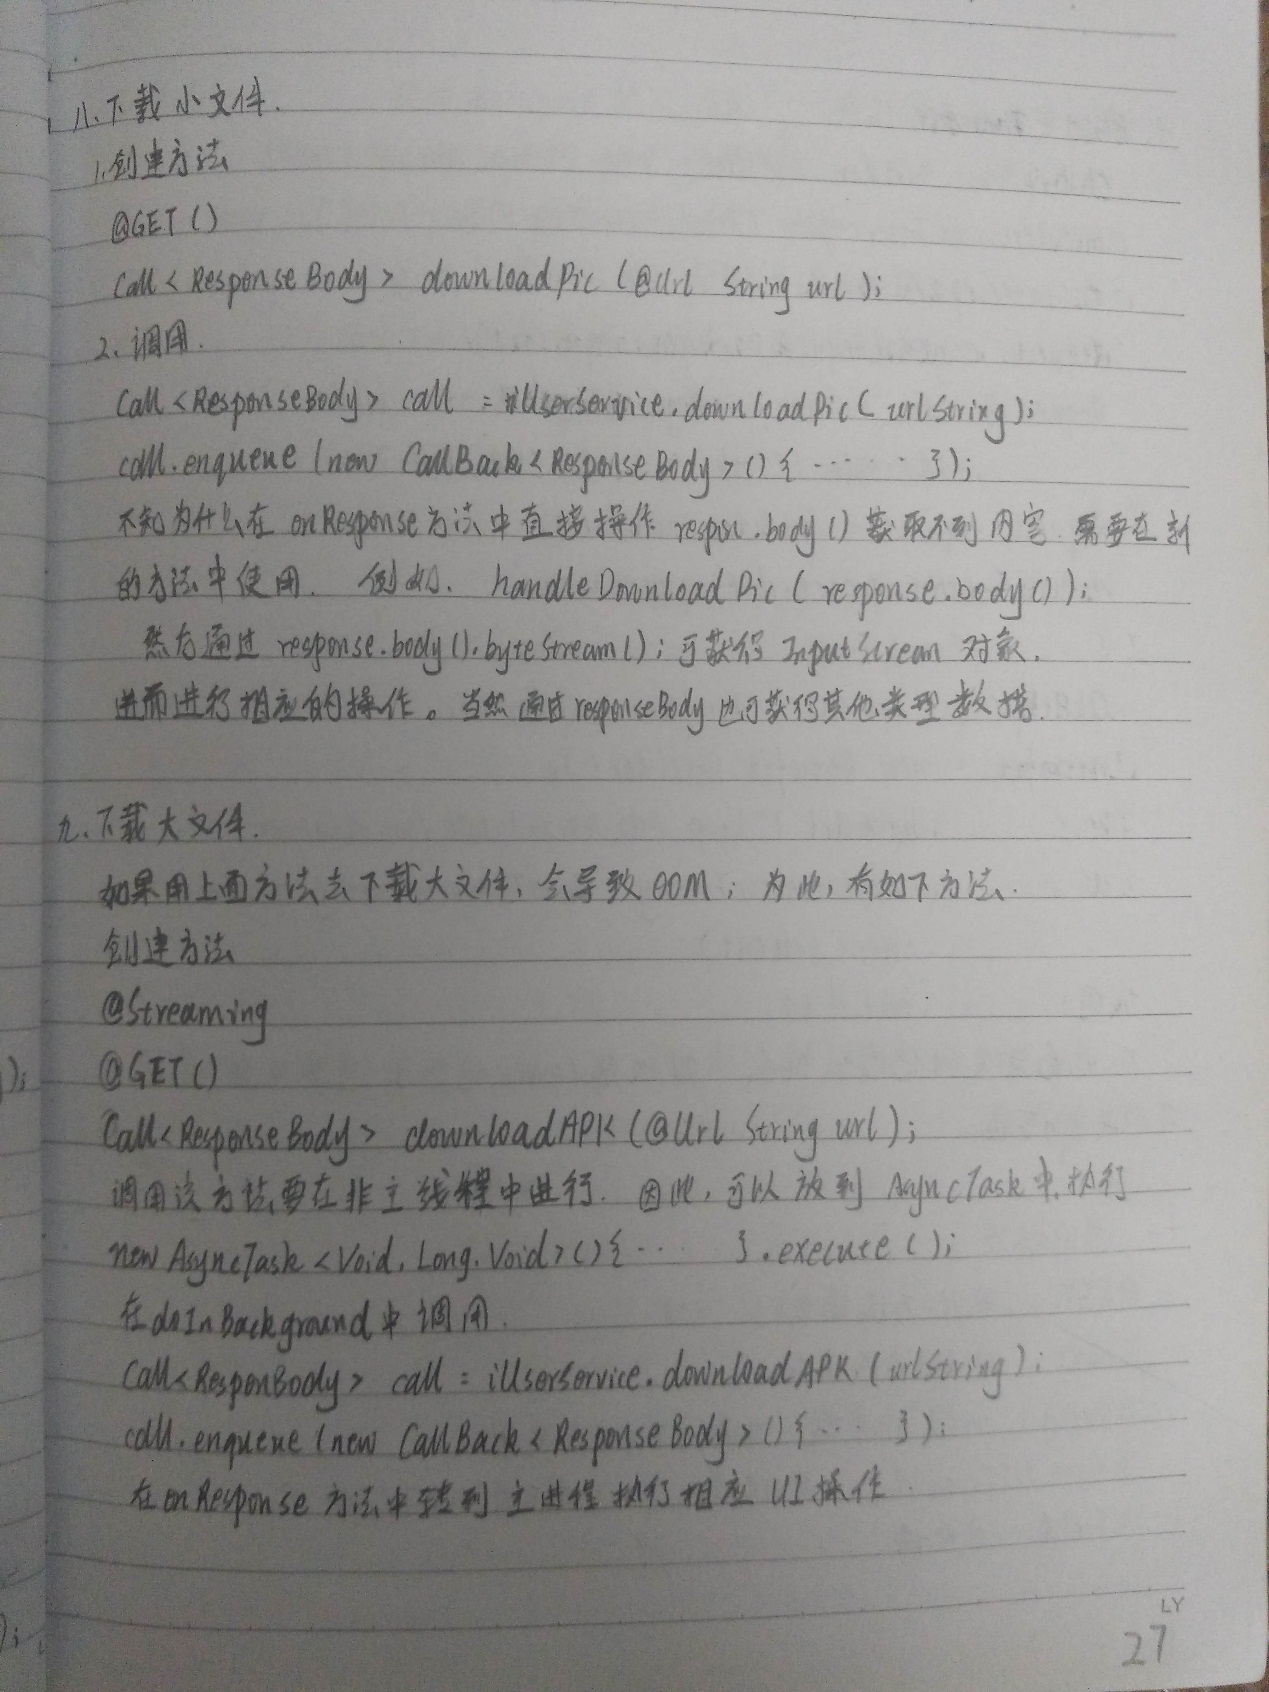 八、下载小文件.
1.创建方法
@GET()
Call<ResponseBody> downloadPic(@Url String url);
2、调用.
Call<ResponseBody> call = iUserService.downloadPic(urlString);
call.enqueue(new CallBack<ResponseBody>(){ ······ });
不知为什么在onResponse方法中直接操作respon.body()获取不到内容.需要在新
的方法中使用. 例如. handleDownloadPic(response.body());
然后通过response.body().byteStream();可获得InputStream对象.
进而进行相应的操作。当然通过responseBody也可获得其他类型数据.
九、下载大文件.
如果用上面方法去下载大文件,会导致OOM;为此,有如下方法.
创建方法
@Streaming
@GET()
);
Call<ResponseBody> downloadAPK(@Url String url);
调用该方法要在非主线程中进行.因此,可以放到AsyncTask中执行
new AsyncTask<Void, Long, Void>(){ ··· ··· }.execute();
在doInBackground中调用.
Call<ResponBody> call = iUserService.downloadAPK(urlString);
call.enqueue(new CallBack<ResponseBody>(){ ··· });
在onResponse方法中转到主进程执行相应UI操作.
);
LY
27